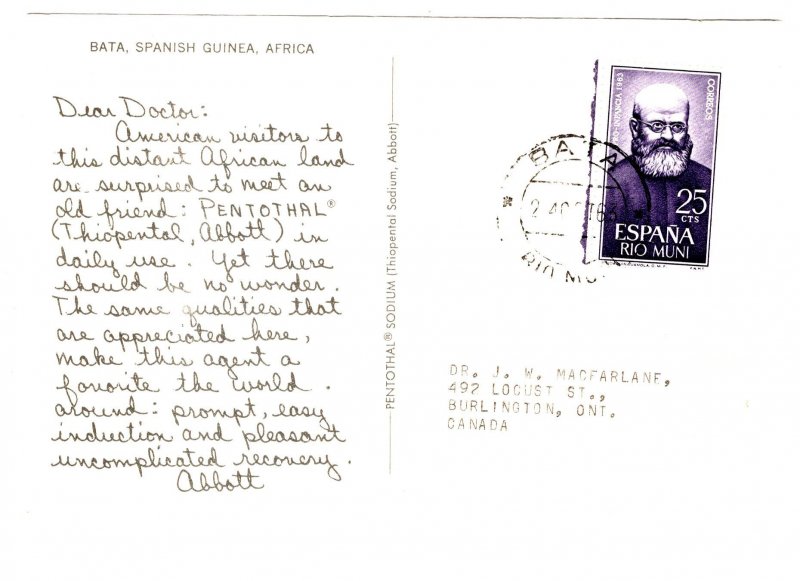 BATA, SPANISH GUINEA, AFRICA
Dear Doctor:
American visitors to
this distant African land
are surprised to meet an
old friend: PENTOTHAL®
(Thiopental, Abbott) in
daily use. Yet there
should be no wonder.
The same qualities that
are appreciated here,
make this agent a
favorite the world
around: prompt, easy
induction and pleasant
uncomplicated recovery.
Abbott
PENTOTHAL® SODIUM (Thiopental Sodium, Abbott)
BATA
RIO MU
INFANCIA 1963
CORREOS
25
CTS
ESPAÑA
RIO MUNI
DR. J. W. MACFARLANE,
492 LOCUST ST.,
BURLINGTON, ONT.
CANADA